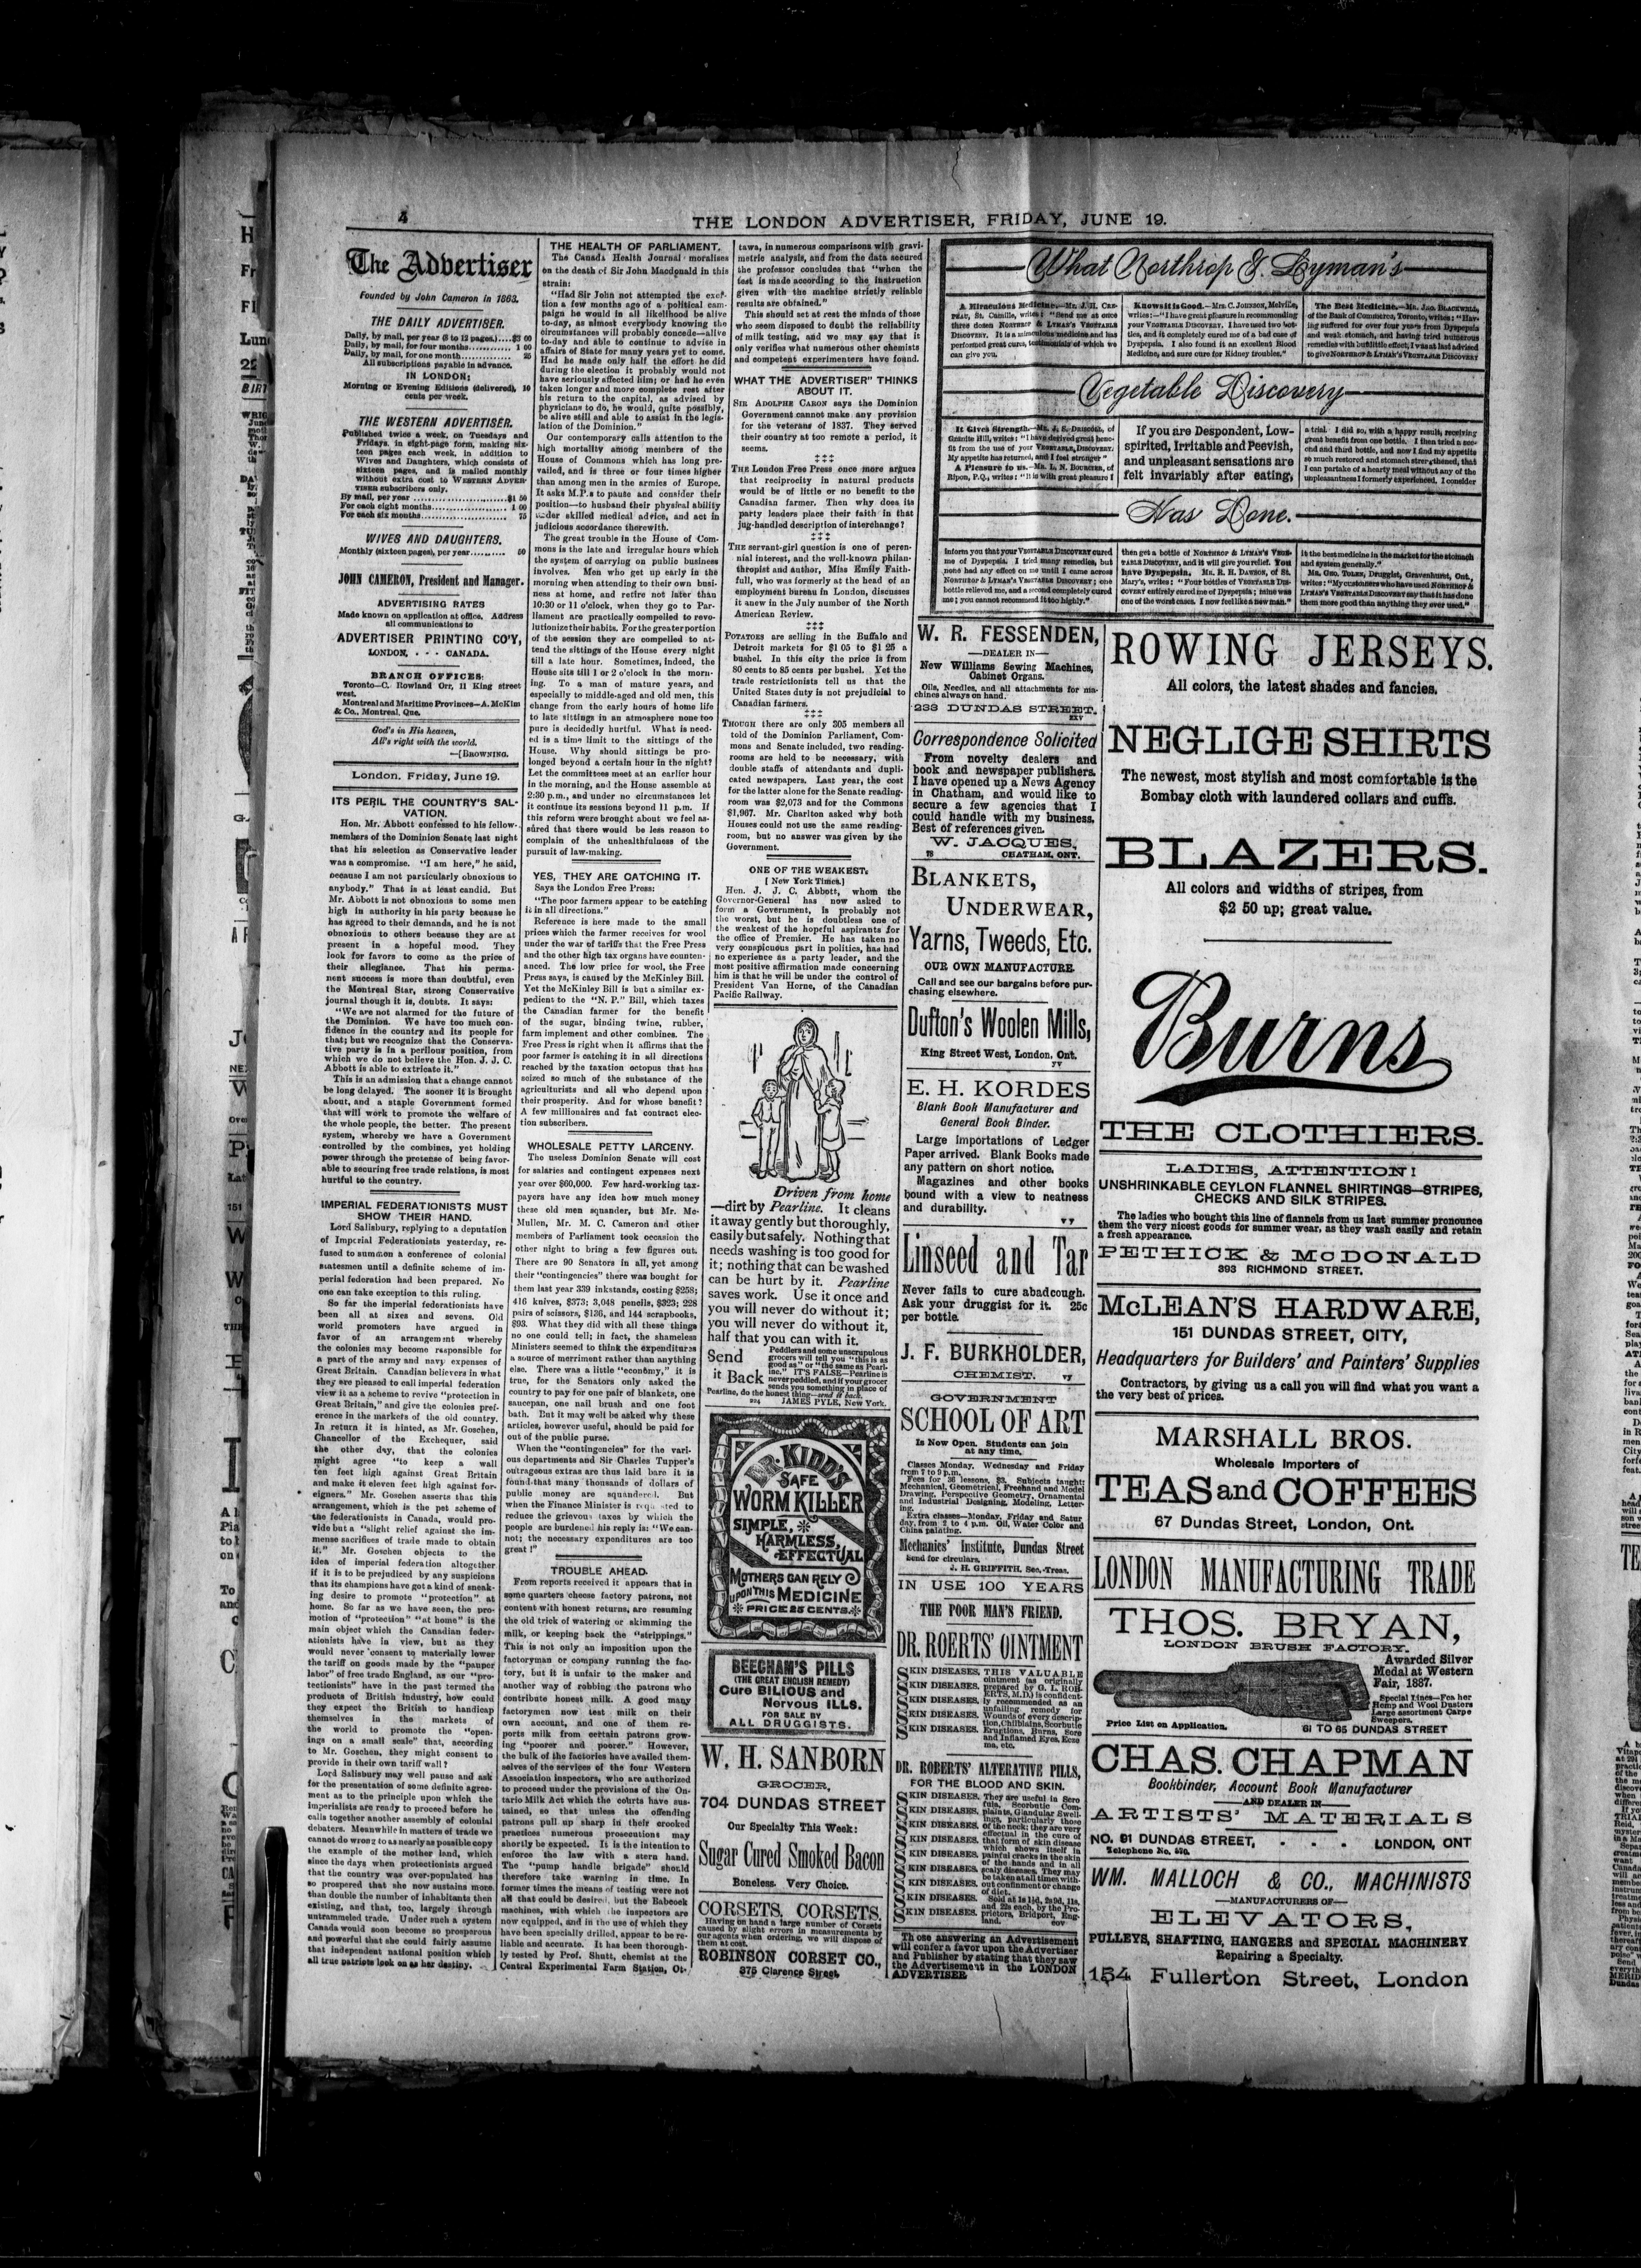 4
THE LONDON ADVERTISER, FRIDAY, JUNE 19.
The Advertiser
Founded by John Cameron in 1863.
THE DAILY ADVERTISER.
Daily, by mail, per year (8 to 12 pages)....$3 00
Daily, by mail, for four months........... 1 00
Daily, by mail, for one month........... 25
All subscriptions payable in advance.
IN LONDON:
Morning or Evening Editions (delivered), 10
cents per week.
THE WESTERN ADVERTISER.
Published twice a week, on Tuesdays and
Fridays, in eight-page form, making six-
teen pages each week, in addition to
Wives and Daughters, which consists of
sixteen pages, and is mailed monthly
without extra cost to WESTERN ADVER-
TISER subscribers only.
By mail, per year ........................$1 50
For each eight months.................... 1 00
For each six months...................... 75
WIVES AND DAUGHTERS.
Monthly (sixteen pages), per year.......... 50
JOHN CAMERON, President and Manager.
ADVERTISING RATES
Made known on application at office. Address
all communications to
ADVERTISER PRINTING CO'Y,
LONDON, - - - CANADA.
BRANCH OFFICES:
Toronto—C. Rowland Orr, 11 King street
west.
Montreal and Maritime Provinces—A. McKim
& Co., Montreal, Que.
God's in His heaven,
All's right with the world.
—[BROWNING.
London, Friday, June 19.
ITS PERIL THE COUNTRY'S SAL-
VATION.
Hon. Mr. Abbott confessed to his fellow-
members of the Dominion Senate last night
that his selection as Conservative leader
was a compromise. "I am here," he said,
because I am not particularly obnoxious to
anybody." That is at least candid. But
Mr. Abbott is not obnoxious to some men
high in authority in his party because he
has agreed to their demands, and he is not
obnoxious to others because they are at
present in a hopeful mood. They
look for favors to come as the price of
their allegiance. That his perma-
nent success is more than doubtful, even
the Montreal Star, strong Conservative
journal though it is, doubts. It says:
"We are not alarmed for the future of
the Dominion. We have too much con-
fidence in the country and its people for
that; but we recognize that the Conserva-
tive party is in a perilous position, from
which we do not believe the Hon. J. J. C.
Abbott is able to extricate it."
This is an admission that a change cannot
be long delayed. The sooner it is brought
about, and a staple Government formed
that will work to promote the welfare of
the whole people, the better. The present
system, whereby we have a Government
controlled by the combines, yet holding
power through the pretense of being favor-
able to securing free trade relations, is most
hurtful to the country.
IMPERIAL FEDERATIONISTS MUST
SHOW THEIR HAND.
Lord Salisbury, replying to a deputation
of Imperial Federationists yesterday, re-
fused to summon a conference of colonial
statesmen until a definite scheme of im-
perial federation had been prepared. No
one can take exception to this ruling.
So far the imperial federationists have
been all at sixes and sevens. Old
world promoters have argued in
favor of an arrangement whereby
the colonies may become responsible for
a part of the army and navy expenses of
Great Britain. Canadian believers in what
they are pleased to call imperial federation
view it as a scheme to revive "protection in
Great Britain," and give the colonies pref-
erence in the markets of the old country.
In return it is hinted, as Mr. Goschen,
Chancellor of the Exchequer, said
the other day, that the colonies
might agree "to keep a wall
ten feet high against Great Britain
and make it eleven feet high against for-
eigners." Mr. Goschen asserts that this
arrangement, which is the pet scheme of
the federationists in Canada, would pro-
vide but a "slight relief against the im-
mense sacrifices of trade made to obtain
it." Mr. Goschen objects to the
idea of imperial federation altogether
if it is to be prejudiced by any suspicions
that its champions have got a kind of sneak-
ing desire to promote "protection" at
home. So far as we have seen, the pro-
motion of "protection" "at home" is the
main object which the Canadian feder-
ationists have in view, but as they
would never consent to materially lower
the tariff on goods made by the "pauper
labor" of free trade England, as our "pro-
tectionists" have in the past termed the
products of British industry, how could
they expect the British to handicap
themselves in the markets of
the world to promote the "open-
ings on a small scale" that, according
to Mr. Goschen, they might consent to
provide in their own tariff wall?
Lord Salisbury may well pause and ask
for the presentation of some definite agree-
ment as to the principle upon which the
imperialists are ready to proceed before he
calls together another assembly of colonial
debaters. Meanwhile in matters of trade we
cannot do wrong to as nearly as possible copy
the example of the mother land, which
since the days when protectionists argued
that the country was over-populated has
so prospered that she now sustains more
than double the number of inhabitants then
existing, and that, too, largely through
untrammeled trade. Under such a system
Canada would soon become so prosperous
and powerful that she could fairly assume
that independent national position which
all true patriots look on as her destiny.
THE HEALTH OF PARLIAMENT.
The Canada Health Journal moralises
on the death of Sir John Macdonald in this
strain:
"Had Sir John not attempted the exer-
tion a few months ago of a political cam-
paign he would in all likelihood be alive
to-day, as almost everybody knowing the
circumstances will probably concede—alive
to-day and able to continue to advise in
affairs of State for many years yet to come.
Had he made only half the effort he did
during the election it probably would not
have seriously affected him; or had he even
taken longer and more complete rest after
his return to the capital, as advised by
physicians to do, he would, quite possibly,
be alive still and able to assist in the legis-
lation of the Dominion."
Our contemporary calls attention to the
high mortality among members of the
House of Commons which has long pre-
vailed, and is three or four times higher
than among men in the armies of Europe.
It asks M.P.s to pause and consider their
position—to husband their physical ability
under skilled medical advice, and act in
judicious accordance therewith.
The great trouble in the House of Com-
mons is the late and irregular hours which
the system of carrying on public business
involves. Men who get up early in the
morning when attending to their own busi-
ness at home, and retire not later than
10:30 or 11 o'clock, when they go to Par-
liament are practically compelled to revo-
lutionize their habits. For the greater portion
of the session they are compelled to at-
tend the sittings of the House every night
till a late hour. Sometimes, indeed, the
House sits till 1 or 2 o'clock in the morn-
ing. To a man of mature years, and
especially to middle-aged and old men, this
change from the early hours of home life
to late sittings in an atmosphere none too
pure is decidedly hurtful. What is need-
ed is a time limit to the sittings of the
House. Why should sittings be pro-
longed beyond a certain hour in the night?
Let the committees meet at an earlier hour
in the morning, and the House assemble at
2:30 p.m., and under no circumstances let
it continue its sessions beyond 11 p.m. If
this reform were brought about we feel as-
sured that there would be less reason to
complain of the unhealthfulness of the
pursuit of law-making.
YES, THEY ARE CATCHING IT.
Says the London Free Press:
"The poor farmers appear to be catching
it in all directions."
Reference is here made to the small
prices which the farmer receives for wool
under the war of tariffs that the Free Press
and the other high tax organs have counten-
anced. The low price for wool, the Free
Press says, is caused by the McKinley Bill.
Yet the McKinley Bill is but a similar ex-
pedient to the "N. P." Bill, which taxes
the Canadian farmer for the benefit
of the sugar, binding twine, rubber,
farm implement and other combines. The
Free Press is right when it affirms that the
poor farmer is catching it in all directions
reached by the taxation octopus that has
seized so much of the substance of the
agriculturists and all who depend upon
their prosperity. And for whose benefit?
A few millionaires and fat contract elec-
tion subscribers.
WHOLESALE PETTY LARCENY.
The useless Dominion Senate will cost
for salaries and contingent expenses next
year over $60,000. Few hard-working tax-
payers have any idea how much money
these old men squander, but Mr. Mc-
Mullen, Mr. M. C. Cameron and other
members of Parliament took occasion the
other night to bring a few figures out.
There are 90 Senators in all, yet among
their "contingencies" there was bought for
them last year 339 inkstands, costing $258;
416 knives, $373; 3,048 pencils, $323; 228
pairs of scissors, $136, and 144 scrapbooks,
$93. What they did with all these things
no one could tell; in fact, the shameless
Ministers seemed to think the expenditures
a source of merriment rather than anything
else. There was a little "economy," it is
true, for the Senators only asked the
country to pay for one pair of blankets, one
saucepan, one nail brush and one foot
bath. But it may well be asked why these
articles, however useful, should be paid for
out of the public purse.
When the "contingencies" for the vari-
ous departments and Sir Charles Tupper's
outrageous extras are thus laid bare it is
found that many thousands of dollars of
public money are squandered. But
when the Finance Minister is requested to
reduce the grievous taxes by which the
people are burdened his reply is: "We can-
not; the necessary expenditures are too
great!"
TROUBLE AHEAD.
From reports received it appears that in
some quarters cheese factory patrons, not
content with honest returns, are resuming
the old trick of watering or skimming the
milk, or keeping back the "strippings."
This is not only an imposition upon the
factoryman or company running the fac-
tory, but it is unfair to the maker and
another way of robbing the patrons who
contribute honest milk. A good many
factorymen now test milk on their
own account, and one of them re-
ports milk from certain patrons grow-
ing "poorer and poorer." However,
the bulk of the factories have availed them-
selves of the services of the four Western
Association inspectors, who are authorized
to proceed under the provisions of the On-
tario Milk Act which the courts have sus-
tained, so that unless the offending
patrons pull up sharp in their crooked
practices numerous prosecutions may
shortly be expected. It is the intention to
enforce the law with a stern hand.
The "pump handle brigade" should
therefore take warning in time. In
former times the means of testing were not
all that could be desired, but the Babcock
machines, with which the inspectors are
now equipped, and in the use of which they
have been specially drilled, appear to be re-
liable and accurate. It has been thorough-
ly tested by Prof. Shutt, chemist at the
Central Experimental Farm Station, Ot-
tawa, in numerous comparisons with gravi-
metric analysis, and from the data secured
the professor concludes that "when the
test is made according to the instruction
given with the machine strictly reliable
results are obtained."
This should set at rest the minds of those
who seem disposed to doubt the reliability
of milk testing, and we may say that it
only verifies what numerous other chemists
and competent experimenters have found.
WHAT THE ADVERTISER" THINKS
ABOUT IT.
SIR ADOLPHE CARON says the Dominion
Government cannot make any provision
for the veterans of 1837. They served
their country at too remote a period, it
seems.
‡‡‡
THE London Free Press once more argues
that reciprocity in natural products
would be of little or no benefit to the
Canadian farmer. Then why does its
party leaders place their faith in that
jug-handled description of interchange?
‡‡‡
THE servant-girl question is one of peren-
nial interest, and the well-known philan-
thropist and author, Miss Emily Faith-
full, who was formerly at the head of an
employment bureau in London, discusses
it anew in the July number of the North
American Review.
‡‡‡
POTATOES are selling in the Buffalo and
Detroit markets for $1 05 to $1 25 a
bushel. In this city the price is from
80 cents to 85 cents per bushel. Yet the
trade restrictionists tell us that the
United States duty is not prejudicial to
Canadian farmers.
‡‡‡
THOUGH there are only 305 members all
told of the Dominion Parliament, Com-
mons and Senate included, two reading-
rooms are held to be necessary, with
double staffs of attendants and dupli-
cated newspapers. Last year, the cost
for the latter alone for the Senate reading-
room was $2,073 and for the Commons
$1,967. Mr. Charlton asked why both
Houses could not use the same reading-
room, but no answer was given by the
Government.
ONE OF THE WEAKEST.
[New York Times.]
Hon. J. J. C. Abbott, whom the
Governor-General has now asked to
form a Government, is probably not
the worst, but he is doubtless one of
the weakest of the hopeful aspirants for
the office of Premier. He has taken no
very conspicuous part in politics, has had
no experience as a party leader, and the
most positive affirmation made concerning
him is that he will be under the control of
President Van Horne, of the Canadian
Pacific Railway.
Driven from home
—dirt by Pearline. It cleans
it away gently but thoroughly,
easily but safely. Nothing that
needs washing is too good for
it; nothing that can be washed
can be hurt by it. Pearline
saves work. Use it once and
you will never do without it;
you will never do without it,
half that you can with it.
Send
it Back
Peddlers and some unscrupulous
grocers will tell you "this is as
good as" or "the same as Pearl-
ine." IT'S FALSE—Pearline is
never peddled, and if your grocer
sends you something in place of
Pearline, do the honest thing—send it back.
224 JAMES PYLE, New York.
DR. KIDD'S
SAFE
WORM KILLER
SIMPLE,
HARMLESS,
EFFECTUAL
MOTHERS CAN RELY
UPON THIS MEDICINE
PRICE 25 CENTS.
BEECHAM'S PILLS
(THE GREAT ENGLISH REMEDY)
Cure BILIOUS and
Nervous ILLS.
FOR SALE BY
ALL DRUGGISTS.
W. H. SANBORN
GROCER,
704 DUNDAS STREET
Our Specialty This Week:
Sugar Cured Smoked Bacon
Boneless. Very Choice.
CORSETS. CORSETS.
Having on hand a large number of Corsets
caused by slight errors in measurements by
our agents when ordering, we will dispose of
them at cost.
ROBINSON CORSET CO.,
375 Clarence Street.
What Northrop & Lyman's
A Miraculous Medicine.—Mr. J. H. CAR-
PEAU, St. Camille, writes: "Send me at once
three dozen NORTHROP & LYMAN'S VEGETABLE
DISCOVERY. It is a miraculous medicine and has
performed great cures, testimonials of which we
can give you.
Knows it is Good.—Mrs. C. JOHNSON, Melville,
writes:—"I have great pleasure in recommending
your VEGETABLE DISCOVERY. I have used two bot-
tles, and it completely cured me of a bad case of
Dyspepsia. I also found it an excellent Blood
Medicine, and sure cure for Kidney troubles."
The Best Medicine.—Mr. JAO. BLACKWELL,
of the Bank of Commerce, Toronto, writes: "Hav-
ing suffered for over four years from Dyspepsia
and weak stomach, and having tried numerous
remedies with but little effect, I was at last advised
to give NORTHROP & LYMAN'S VEGETABLE DISCOVERY
Vegetable Discovery
It Gives Strength.—Mr. J. S. DRISCOLL, of
Granite Hill, writes: "I have derived great bene-
fit from the use of your VEGETABLE DISCOVERY.
My appetite has returned, and I feel stronger"
A Pleasure to us.—Mr. L. N. BOURCIER, of
Ripon, P.Q., writes: "It is with great pleasure I
If you are Despondent, Low-
spirited, Irritable and Peevish,
and unpleasant sensations are
felt invariably after eating,
a trial. I did so, with a happy result, receiving
great benefit from one bottle. I then tried a sec-
ond and third bottle, and now I find my appetite
so much restored and stomach strengthened, that
I can partake of a hearty meal without any of the
unpleasantness I formerly experienced. I consider
Has Done.
inform you that your VEGETABLE DISCOVERY cured
me of Dyspepsia. I tried many remedies, but
none had any effect on me until I came across
NORTHROP & LYMAN'S VEGETABLE DISCOVERY; one
bottle relieved me, and a second completely cured
me; you cannot recommend it too highly."
then get a bottle of NORTHROP & LYMAN'S VEGE-
TABLE DISCOVERY, and it will give relief. You
have Dyspepsia. Mr. R. H. DAWSON, of St.
Mary's, writes: "Four bottles of VEGETABLE DIS-
COVERY entirely cured me of Dyspepsia; mine was
one of the worst cases. I now feel like a new man."
it the best medicine in the market for the stomach
and system generally."
Mr. GEO. TOLEN, Druggist, Gravenhurst, Ont.,
writes: "My customers who have used NORTHROP &
LYMAN'S VEGETABLE DISCOVERY say that it has done
them more good than anything they ever used."
W. R. FESSENDEN,
—DEALER IN—
New Williams Sewing Machines,
Cabinet Organs.
Oils, Needles, and all attachments for ma-
chines always on hand.
233 DUNDAS STREET.
Correspondence Solicited
From novelty dealers and
book and newspaper publishers.
I have opened up a News Agency
in Chatham, and would like to
secure a few agencies that I
could handle with my business.
Best of references given.
W. JACQUES,
78 CHATHAM, ONT.
BLANKETS,
UNDERWEAR,
Yarns, Tweeds, Etc.
OUR OWN MANUFACTURE.
Call and see our bargains before pur-
chasing elsewhere.
Dufton's Woolen Mills,
King Street West, London, Ont.
yv
E. H. KORDES
Blank Book Manufacturer and
General Book Binder.
Large Importations of Ledger
Paper arrived. Blank Books made
any pattern on short notice.
Magazines and other books
bound with a view to neatness
and durability.
Linseed and Tar
Never fails to cure a bad cough.
Ask your druggist for it. 25c
per bottle.
J. F. BURKHOLDER,
CHEMIST.
GOVERNMENT
SCHOOL OF ART
Is Now Open. Students can join
at any time.
Classes Monday, Wednesday and Friday
from 7 to 9 p.m.
Fees for 36 lessons, $3. Subjects taught:
Mechanical, Geometrical, Freehand and Model
Drawing, Perspective Geometry, Ornamental
and Industrial Designing, Modeling, Letter-
ing.
Extra classes—Monday, Friday and Satur
day, from 2 to 4 p.m. Oil, Water Color and
China painting.
Mechanics' Institute, Dundas Street
Send for circulars.
J. H. GRIFFITH, Sec.-Treas.
IN USE 100 YEARS
THE POOR MAN'S FRIEND.
DR. ROERTS' OINTMENT
SKIN DISEASES.
SKIN DISEASES.
SKIN DISEASES.
SKIN DISEASES.
SKIN DISEASES.
THIS VALUABLE
ointment (as originally
prepared by G. L. ROB-
ERTS, M.D.) is confident-
ly recommended as an
unfailing remedy for
Wounds of every descrip-
tion, Chilblains, Scorbutic
Eruptions, Burns, Sore
and Inflamed Eyes, Ecze
ma, etc.
DR. ROBERTS' ALTERATIVE PILLS,
FOR THE BLOOD AND SKIN.
SKIN DISEASES.
SKIN DISEASES.
SKIN DISEASES.
SKIN DISEASES.
SKIN DISEASES.
SKIN DISEASES.
SKIN DISEASES.
SKIN DISEASES.
SKIN DISEASES.
They are useful in Scro
fula, Scorbutic Com-
plaints, Glandular Swell-
ings, particularly those
of the neck; they are very
effectual in the cure of
that form of skin disease
which shows itself in
painful cracks in the skin
of the hands and in all
scaly diseases. They may
be taken at all times with-
out confinement or change
of diet.
Sold at 1s 1½d, 2s9d, 11s,
and 22s each, by the Pro-
prietors, Bridport, Eng-
land. eov
Those answering an Advertisement
will confer a favor upon the Advertiser
and Publisher by stating that they saw
the Advertisement in the LONDON
ADVERTISER
ROWING JERSEYS.
All colors, the latest shades and fancies.
NEGLIGE SHIRTS
The newest, most stylish and most comfortable is the
Bombay cloth with laundered collars and cuffs.
BLAZERS.
All colors and widths of stripes, from
$2 50 up; great value.
Burns
THE CLOTHIERS.
LADIES, ATTENTION!
UNSHRINKABLE CEYLON FLANNEL SHIRTINGS—STRIPES,
CHECKS AND SILK STRIPES.
The ladies who bought this line of flannels from us last summer pronounce
them the very nicest goods for summer wear, as they wash easily and retain
a fresh appearance.
PETHICK & McDONALD
393 RICHMOND STREET.
McLEAN'S HARDWARE,
151 DUNDAS STREET, CITY,
Headquarters for Builders' and Painters' Supplies
Contractors, by giving us a call you will find what you want a
the very best of prices.
MARSHALL BROS.
Wholesale Importers of
TEAS and COFFEES
67 Dundas Street, London, Ont.
LONDON MANUFACTURING TRADE
THOS. BRYAN,
LONDON BRUSH FACTORY.
Awarded Silver
Medal at Western
Fair, 1887.
Special Lines—Fea her
Hemp and Wool Dusters
Large assortment Carpe
Sweepers.
Price List on Application.
61 TO 65 DUNDAS STREET
CHAS. CHAPMAN
Bookbinder, Account Book Manufacturer
—AND DEALER IN—
ARTISTS' MATERIALS
NO. 91 DUNDAS STREET, - - - LONDON, ONT
Telephone No. 470.
WM. MALLOCH & CO., MACHINISTS
—MANUFACTURERS OF—
ELEVATORS,
PULLEYS, SHAFTING, HANGERS and SPECIAL MACHINERY
Repairing a Specialty.
154 Fullerton Street, London